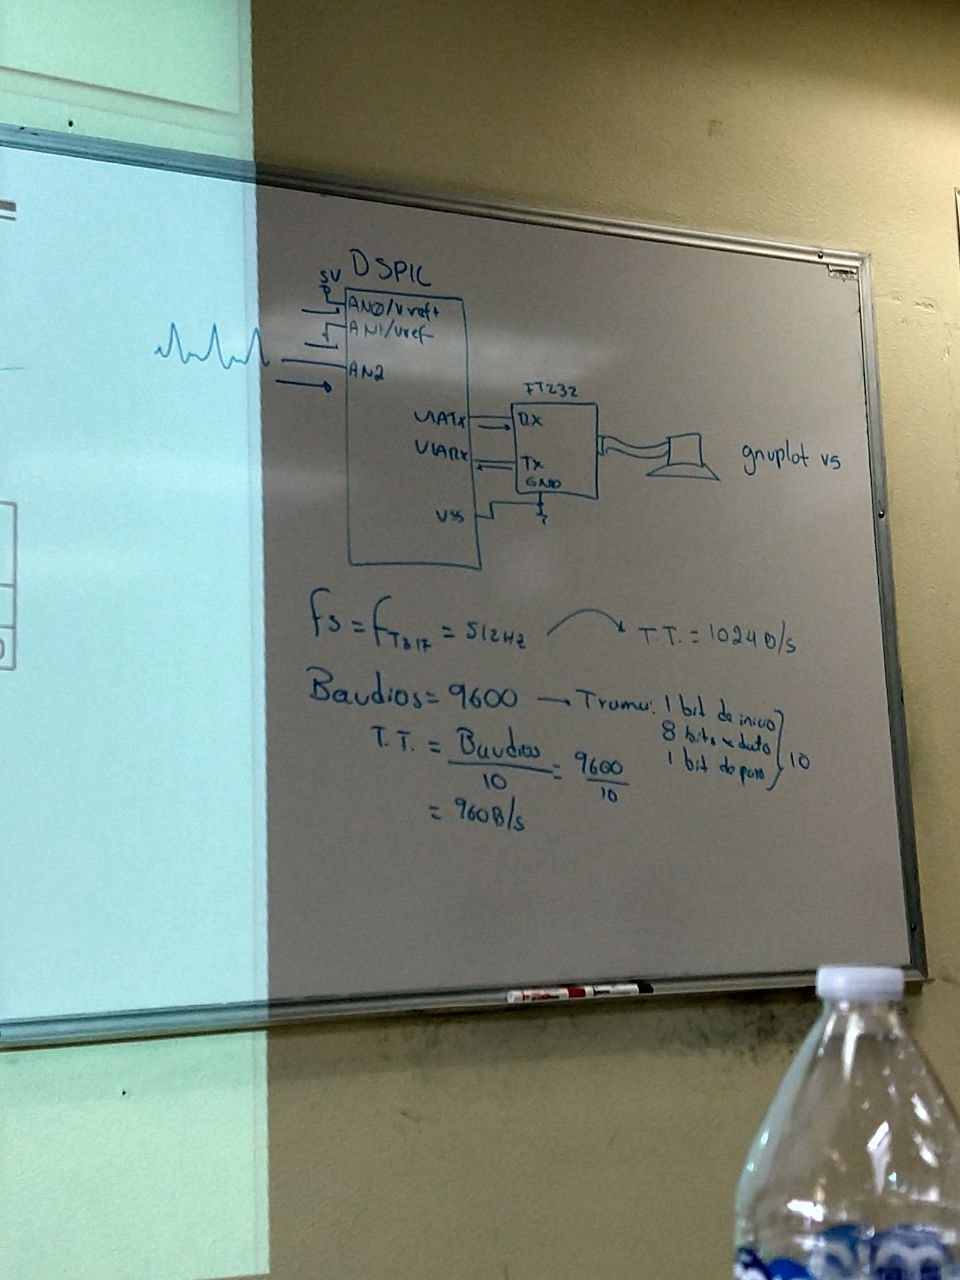 DSPIC
5V
AN0/Vref+
AN1/Vref-
AN2
FT232
U1ATx
RX
U1ARx
TX
GND
VSS
gnuplot vs
fs = f = 512Hz
T.T. = 1024 B/s
Baudios = 9600 → Trama: 1 bit de inicio
8 bits dato
1 bit de paro
10
T.T. = Baudios / 10 = 9600 / 10
= 960B/s